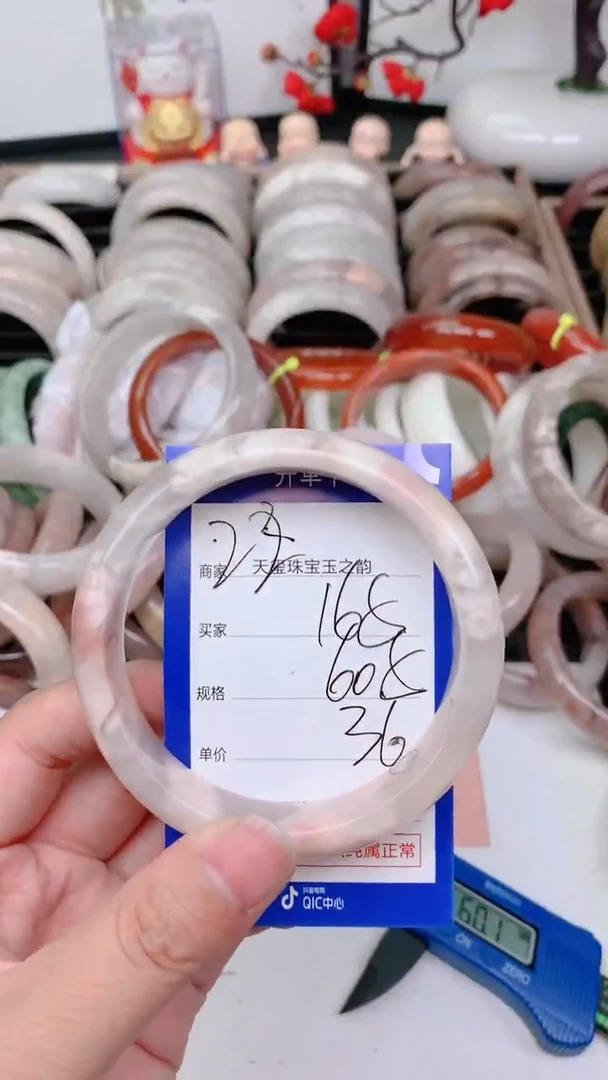 开单卡
商家 天玺珠宝玉之韵
买家 16.5
规格 60.5
单价 36
纯属正常
抖音电商
QIC中心
60.1
ON
ZERO